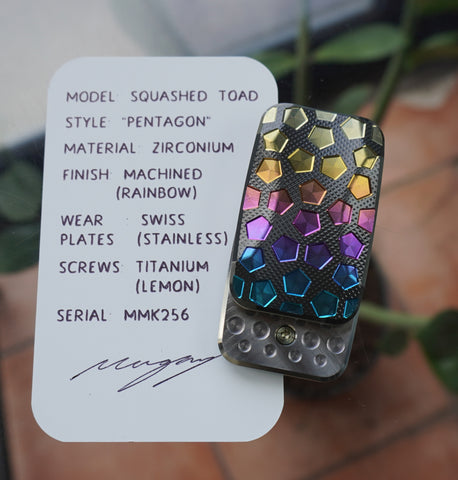 MODEL: SQUASHED TOAD
STYLE: "PENTAGON"
MATERIAL: ZIRCONIUM
FINISH: MACHINED
(RAINBOW)
WEAR : SWISS
PLATES (STAINLESS)
SCREWS: TITANIUM
(LEMON)
SERIAL: MMK256